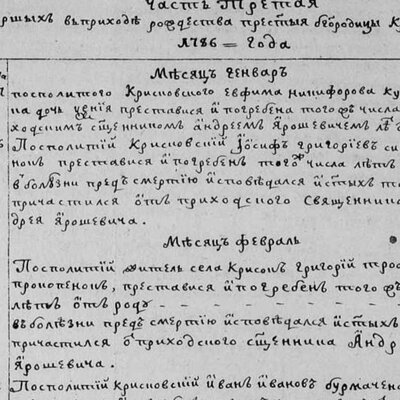 Часть Третая
ршыхъ въ приходѣ рождества престыя бгородицы К
1786 = года
Мѣсяцъ Генваръ
посполитого Крисковского Евфима никифорова Ку
на дочь преставися и погребена тогожъ числа
ходскимъ сщенникомъ Андреемъ Ярошевичемъ лѣ
Посполитий Крисковскій Іосифъ григоріевъ си
нонъ преставися и погребенъ того числа лѣтъ
в болѣзни предъ смертію исповѣдался и стыхъ т
причастился отъ приходского Священник
дрея Ярошевича.
Мѣсяцъ февраль
Посполитій житель села Крисокъ григорій тро
прокопенокъ, преставися и погребенъ тогожъ
лѣтъ отъ роду
въ болѣзни предъ смертію исповѣдался и стыхъ
причастился о приходского сщенника Анд
Ярошевича.
Посполитій Крисковскій иванъ ивановъ бурмаченк